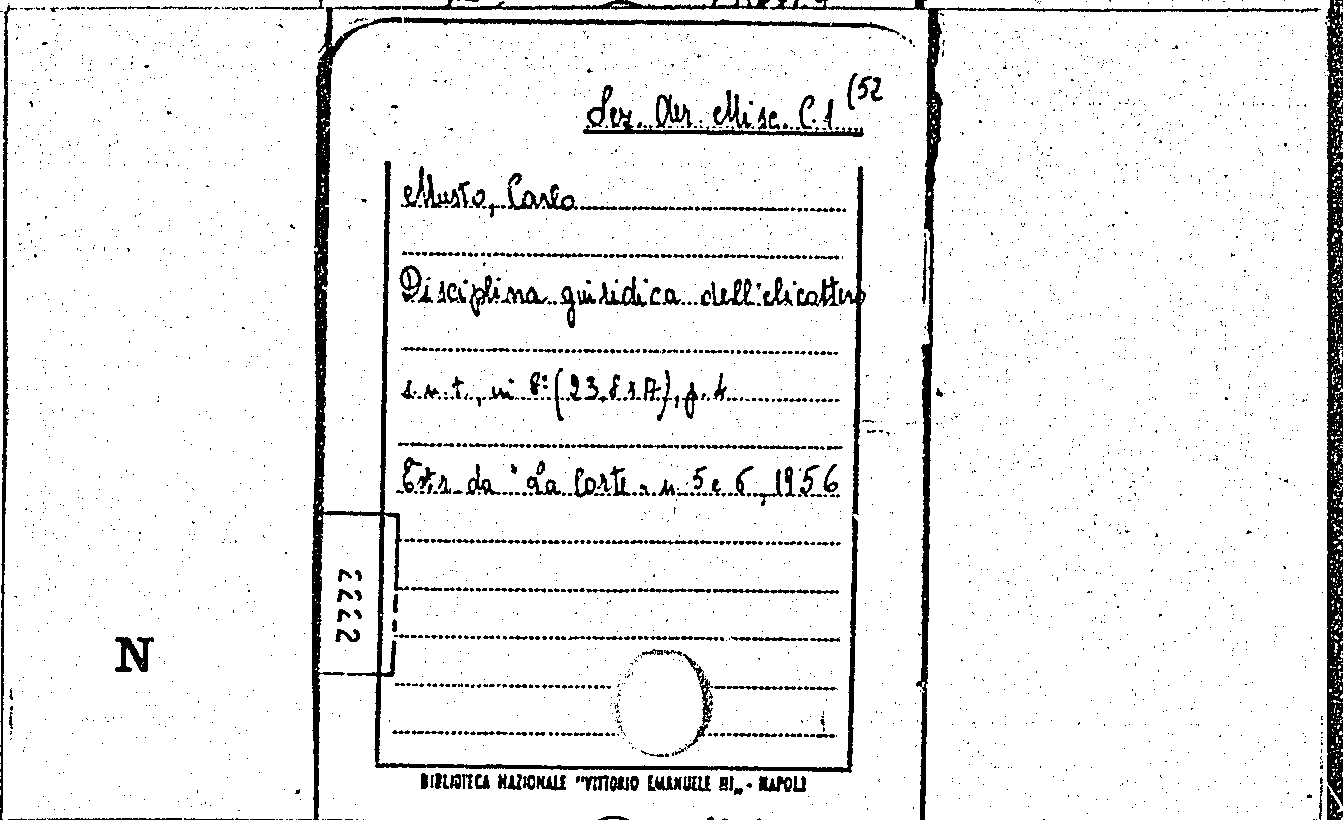 Sez. Aer. Misc. C. 1 (52
Musto, Carlo
Disciplina guiridica dell'elicottero
s. n. t., in 8° (23,8x17), p. 4
Estr. da "La Corte" n 5 e 6, 1956
2222
N
BIBLIOTECA NAZIONALE "VITTORIO EMANUELE III„ - NAPOLI